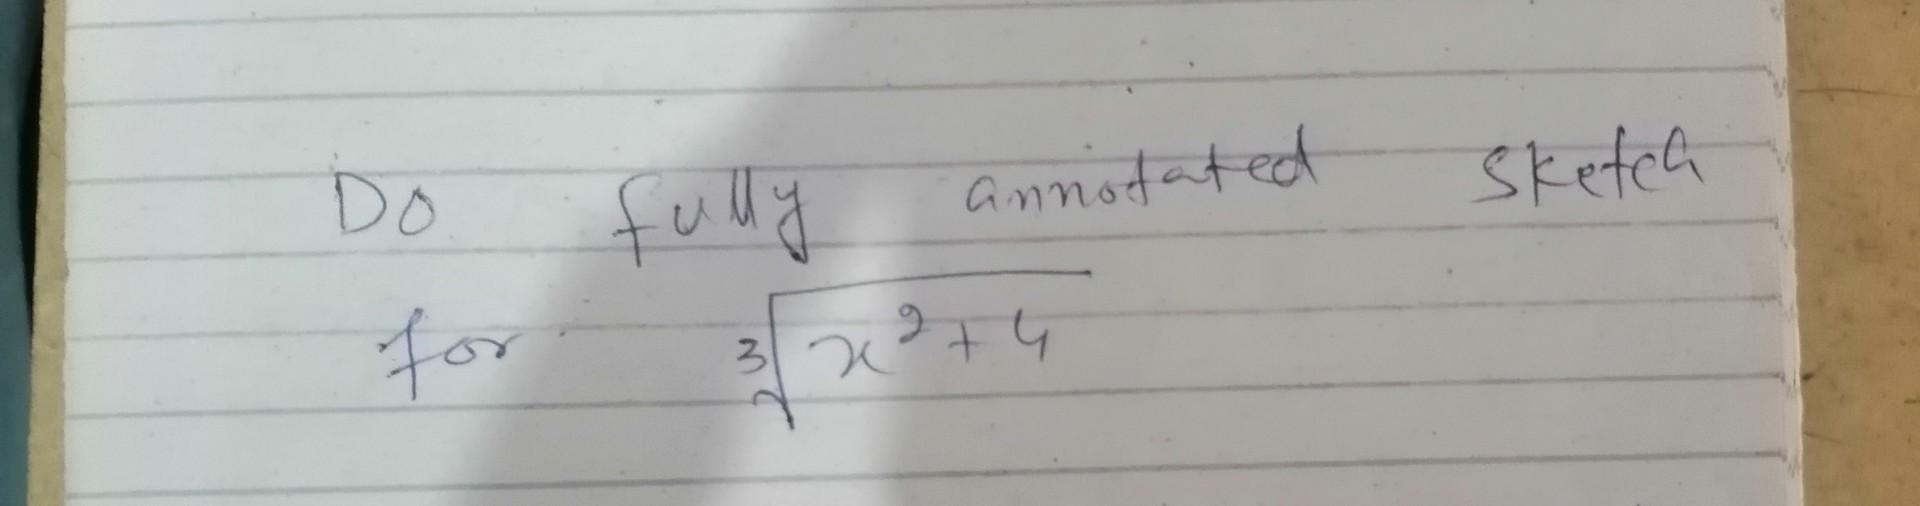 Do fully annotated sketch
for ∛(x²+4)